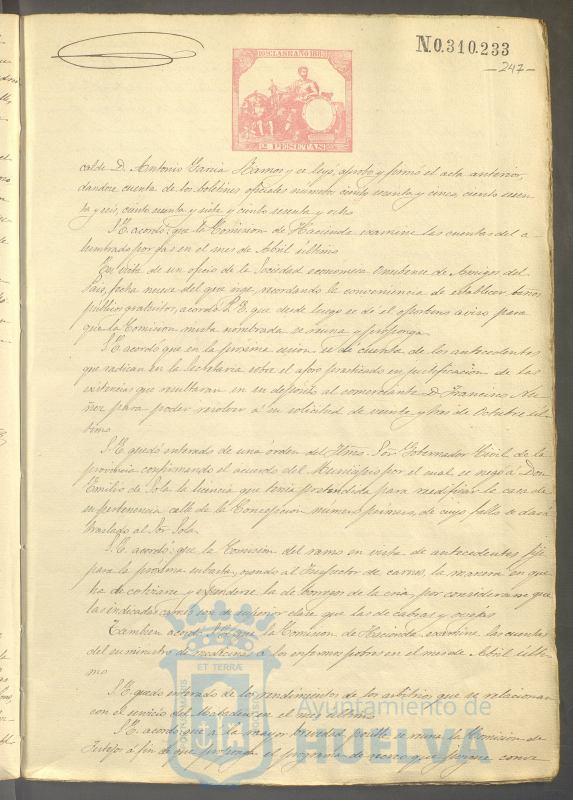 N.0.310.233
247
10º CLASE AÑO 18
2 PESETAS
calde D. Antonio Garcia Ramos y se leyó, aprobó y firmó el acta anterior,
dandose cuenta de los boletines oficiales números ciento sesenta y cinco, ciento sesen
ta y seis, ciento sesenta y siete y ciento sesenta y ocho
S.E. acordó: que la Comision de Hacienda examine las cuentas del a
lumbrado por gas en el mes de Abril último
En vista de un oficio de la Sociedad economica Onubense de Amigos del
Pais, fecha nueve del que rige, recordando la conveniencia de establecer baños
publicos gratuitos, acordó S.E. que desde luego se dé el oportuno aviso para
que la Comision mista nombrada se reuna y proponga
S.E. acordó que en la próxima sesion se dé cuenta de los antecedentes
que radican en la Secretaria sobre el aforo practicado en justificacion de las
existencias que resultaran en su depósito al comerciante D. Francisco
ñez para poder resolver a su solicitud de veinte y tres de Octubre úl
timo
S.E. quedó enterado de una órden del Iltmo. Sor. Gobernador Civil de la
provincia confirmando el acuerdo del Municipio por el cual se negó á Don
Emilio de Sola la licencia que tenia pretendida para reedificar la casa de
su pertenencia calle de la Concepcion numero primero, de cuyo fallo se dará
traslado al Sor Sola
S.E. acordó: que la Comision del ramo en vista de antecedentes fije
para la próxima subasta, oyendo al Inspector de carnes, la manera en que
ha de cotizarse y espenderse la de borregos de la cria, por considerarse que
las indicadas carnes son de superior clase que las de cabras y ovejas
Tambien acordó S.E. que la Comision de Hacienda examine las cuentas
del suministro de medicinas a los enfermos pobres en el mes de Abril últi
mo
S.E. quedó enterado de los rendimientos de los arbitrios que se relacionan
con el servicio del Matadero en el mes último
S.E. acordó que a la mayor brevedad posible se reuna la Comision de
Festejos a fin de que proponga el programa de los que juzgue conve
ET TERRÆ
Ayuntamiento de
HUELVA